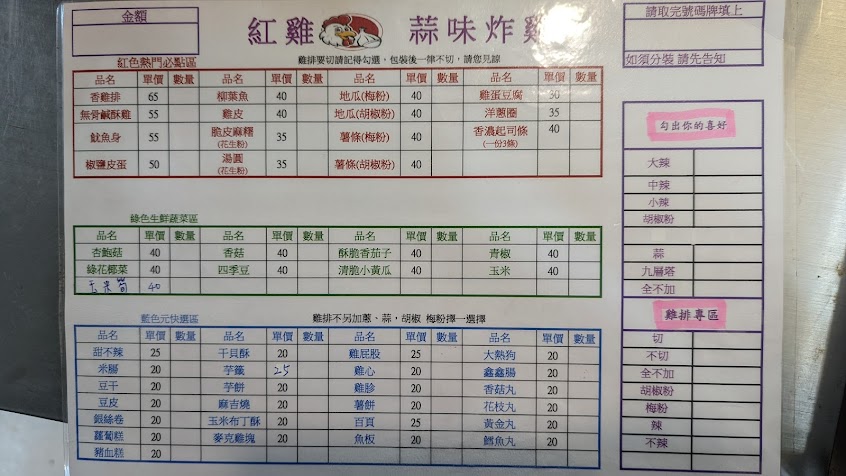 金額
紅雞 蒜味炸雞
請取完號碼牌填上
如須分裝 請先告知
紅色熱門必點區 雞排要切請記得勾選，包裝後一律不切，請您見諒
品名 單價 數量 品名 單價 數量 品名 單價 數量 品名 單價 數量
香雞排 65 柳葉魚 40 地瓜(梅粉) 40 雞蛋豆腐 30
無骨鹹酥雞 55 雞皮 40 地瓜(胡椒粉) 40 洋蔥圈 35
魷魚身 55 脆皮麻糬 (花生粉) 35 薯條(梅粉) 40 香濃起司條 (一份3條) 40
椒鹽皮蛋 50 湯圓 (花生粉) 35 薯條(胡椒粉) 40
綠色生鮮蔬菜區
品名 單價 數量 品名 單價 數量 品名 單價 數量 品名 單價 數量
杏鮑菇 40 香菇 40 酥脆香茄子 40 青椒 40
綠花椰菜 40 四季豆 40 清脆小黃瓜 40 玉米 40
玉米筍 40
藍色元快選區 雞排不另加蔥、蒜，胡椒 梅粉擇一選擇
品名 單價 數量 品名 單價 數量 品名 單價 數量 品名 單價 數量
甜不辣 25 干貝酥 20 雞屁股 25 大熱狗 20
米腸 20 芋籤 25 雞心 20 鑫鑫腸 20
豆干 20 芋餅 20 雞胗 20 香菇丸 20
豆皮 20 麻吉燒 20 薯餅 20 花枝丸 20
銀絲卷 20 玉米布丁酥 20 百頁 25 黃金丸 20
蘿蔔糕 20 麥克雞塊 20 魚板 20 鱈魚丸 20
豬血糕 20
勾出你的喜好
大辣
中辣
小辣
胡椒粉
蒜
九層塔
全不加
雞排專區
切
不切
全不加
胡椒粉
梅粉
辣
不辣